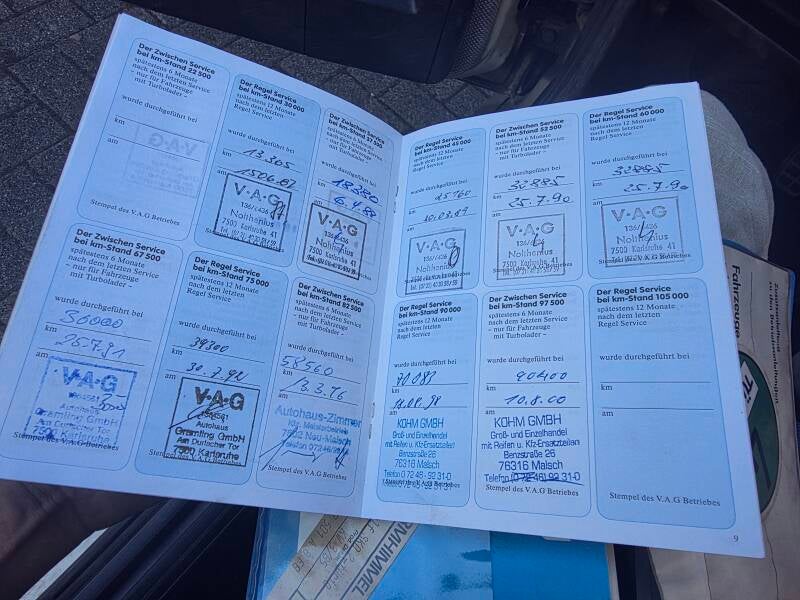 Der Zwischen Service
bei km-Stand 22 500
spätestens 6 Monate
nach dem letzten Service
- nur für Fahrzeuge
mit Turbolader -
wurde durchgeführt bei
km
am
V·A·G
Stempel des V.A.G Betriebes
Der Regel Service
bei km-Stand 30 000
spätestens 12 Monate
nach dem letzten
Regel Service
wurde durchgeführt bei
13.365
km
am
V·A·G
Nolthenius
7500 Karlsruhe 41
wurde durchgeführt bei
km
am
V·A·G
Nolthenius
7500 Karlsruhe 41
Der Zwischen Service
bei km-Stand 67 500
spätestens 6 Monate
nach dem letzten Service
- nur für Fahrzeuge
mit Turbolader -
wurde durchgeführt bei
36000
km
25.7.91
am
V·A·G
Autohaus
Gramling GmbH
Am Durlacher Tor
7500 Karlsruhe
Stempel des V.A.G Betriebes
Der Regel Service
bei km-Stand 75 000
spätestens 12 Monate
nach dem letzten
Regel Service
wurde durchgeführt bei
39300
km
30.7.92
am
V·A·G
Autohaus
Gramling GmbH
Am Durlacher Tor
7500 Karlsruhe
Stempel des V.A.G Betriebes
Der Zwischen Service
bei km-Stand 82 500
spätestens 6 Monate
nach dem letzten Service
- nur für Fahrzeuge
mit Turbolader -
wurde durchgeführt bei
58560
km
13.3.96
am
Autohaus-Zimmer
Kfz. Meisterbetrieb
7502 Neu-Malsch
Der Regel Service
bei km-Stand 45 000
spätestens 12 Monate
nach dem letzten
Regel Service
wurde durchgeführt bei
km
am
V·A·G
Nolthenius
7500 Karlsruhe 41
Der Zwischen Service
bei km-Stand 52 500
spätestens 6 Monate
nach dem letzten Service
- nur für Fahrzeuge
mit Turbolader -
wurde durchgeführt bei
32885
km
25.7.90
am
V·A·G
Nolthenius
7500 Karlsruhe 41
Stempel des V.A.G Betriebes
Der Regel Service
bei km-Stand 60 000
spätestens 12 Monate
nach dem letzten
Regel Service
wurde durchgeführt bei
32885
km
25.7.90
am
V·A·G
Nolthenius
7500 Karlsruhe 41
Stempel des V.A.G Betriebes
Der Regel Service
bei km-Stand 90 000
spätestens 12 Monate
nach dem letzten
Regel Service
wurde durchgeführt bei
km
am
KOHM GMBH
Groß- und Einzelhandel
mit Reifen u. Kfz-Ersatzteilen
Benzstraße 26
76316 Malsch
Telefon (0 72 46) 92 31-0
Stempel des V.A.G Betriebes
Der Zwischen Service
bei km-Stand 97 500
spätestens 6 Monate
nach dem letzten Service
- nur für Fahrzeuge
mit Turbolader -
wurde durchgeführt bei
90400
km
10.8.00
am
KOHM GMBH
Groß- und Einzelhandel
mit Reifen u. Kfz-Ersatzteilen
Benzstraße 26
76316 Malsch
Telefon (0 72 46) 92 31-0
Stempel des V.A.G Betriebes
Der Regel Service
bei km-Stand 105 000
spätestens 12 Monate
nach dem letzten
Regel Service
wurde durchgeführt bei
km
am
Stempel des V.A.G Betriebes
9
Fahrzeuge